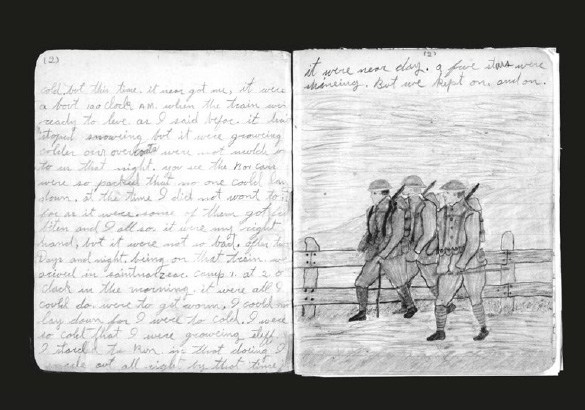 (2)
cold. but this time. it near got me, it were
a bout 120 clock A.M. when the train was
ready to leve as I said befor. it had
stoped snowing but it were growing
colder our overcoats were not
to in that night. you see the Box cars
were so packed that no one could lay
down. at the time I did not wont to
for as it were. some of them got
bitten and I all so. it were my right
hand, but it were not so bad. after two
Days and night, being on that train. we
arived in saintnatzeac. camp 1. at 2. o
clock in the morning. it were all I
could do. were to get worm, I could not
lay down for I were to Cold. I were
so cold that I were growing stiff
I started to Run. in that doring I
made out all right by that time
(2)
it were near day. a fiew stars were
shineing. But we kept on. and on.